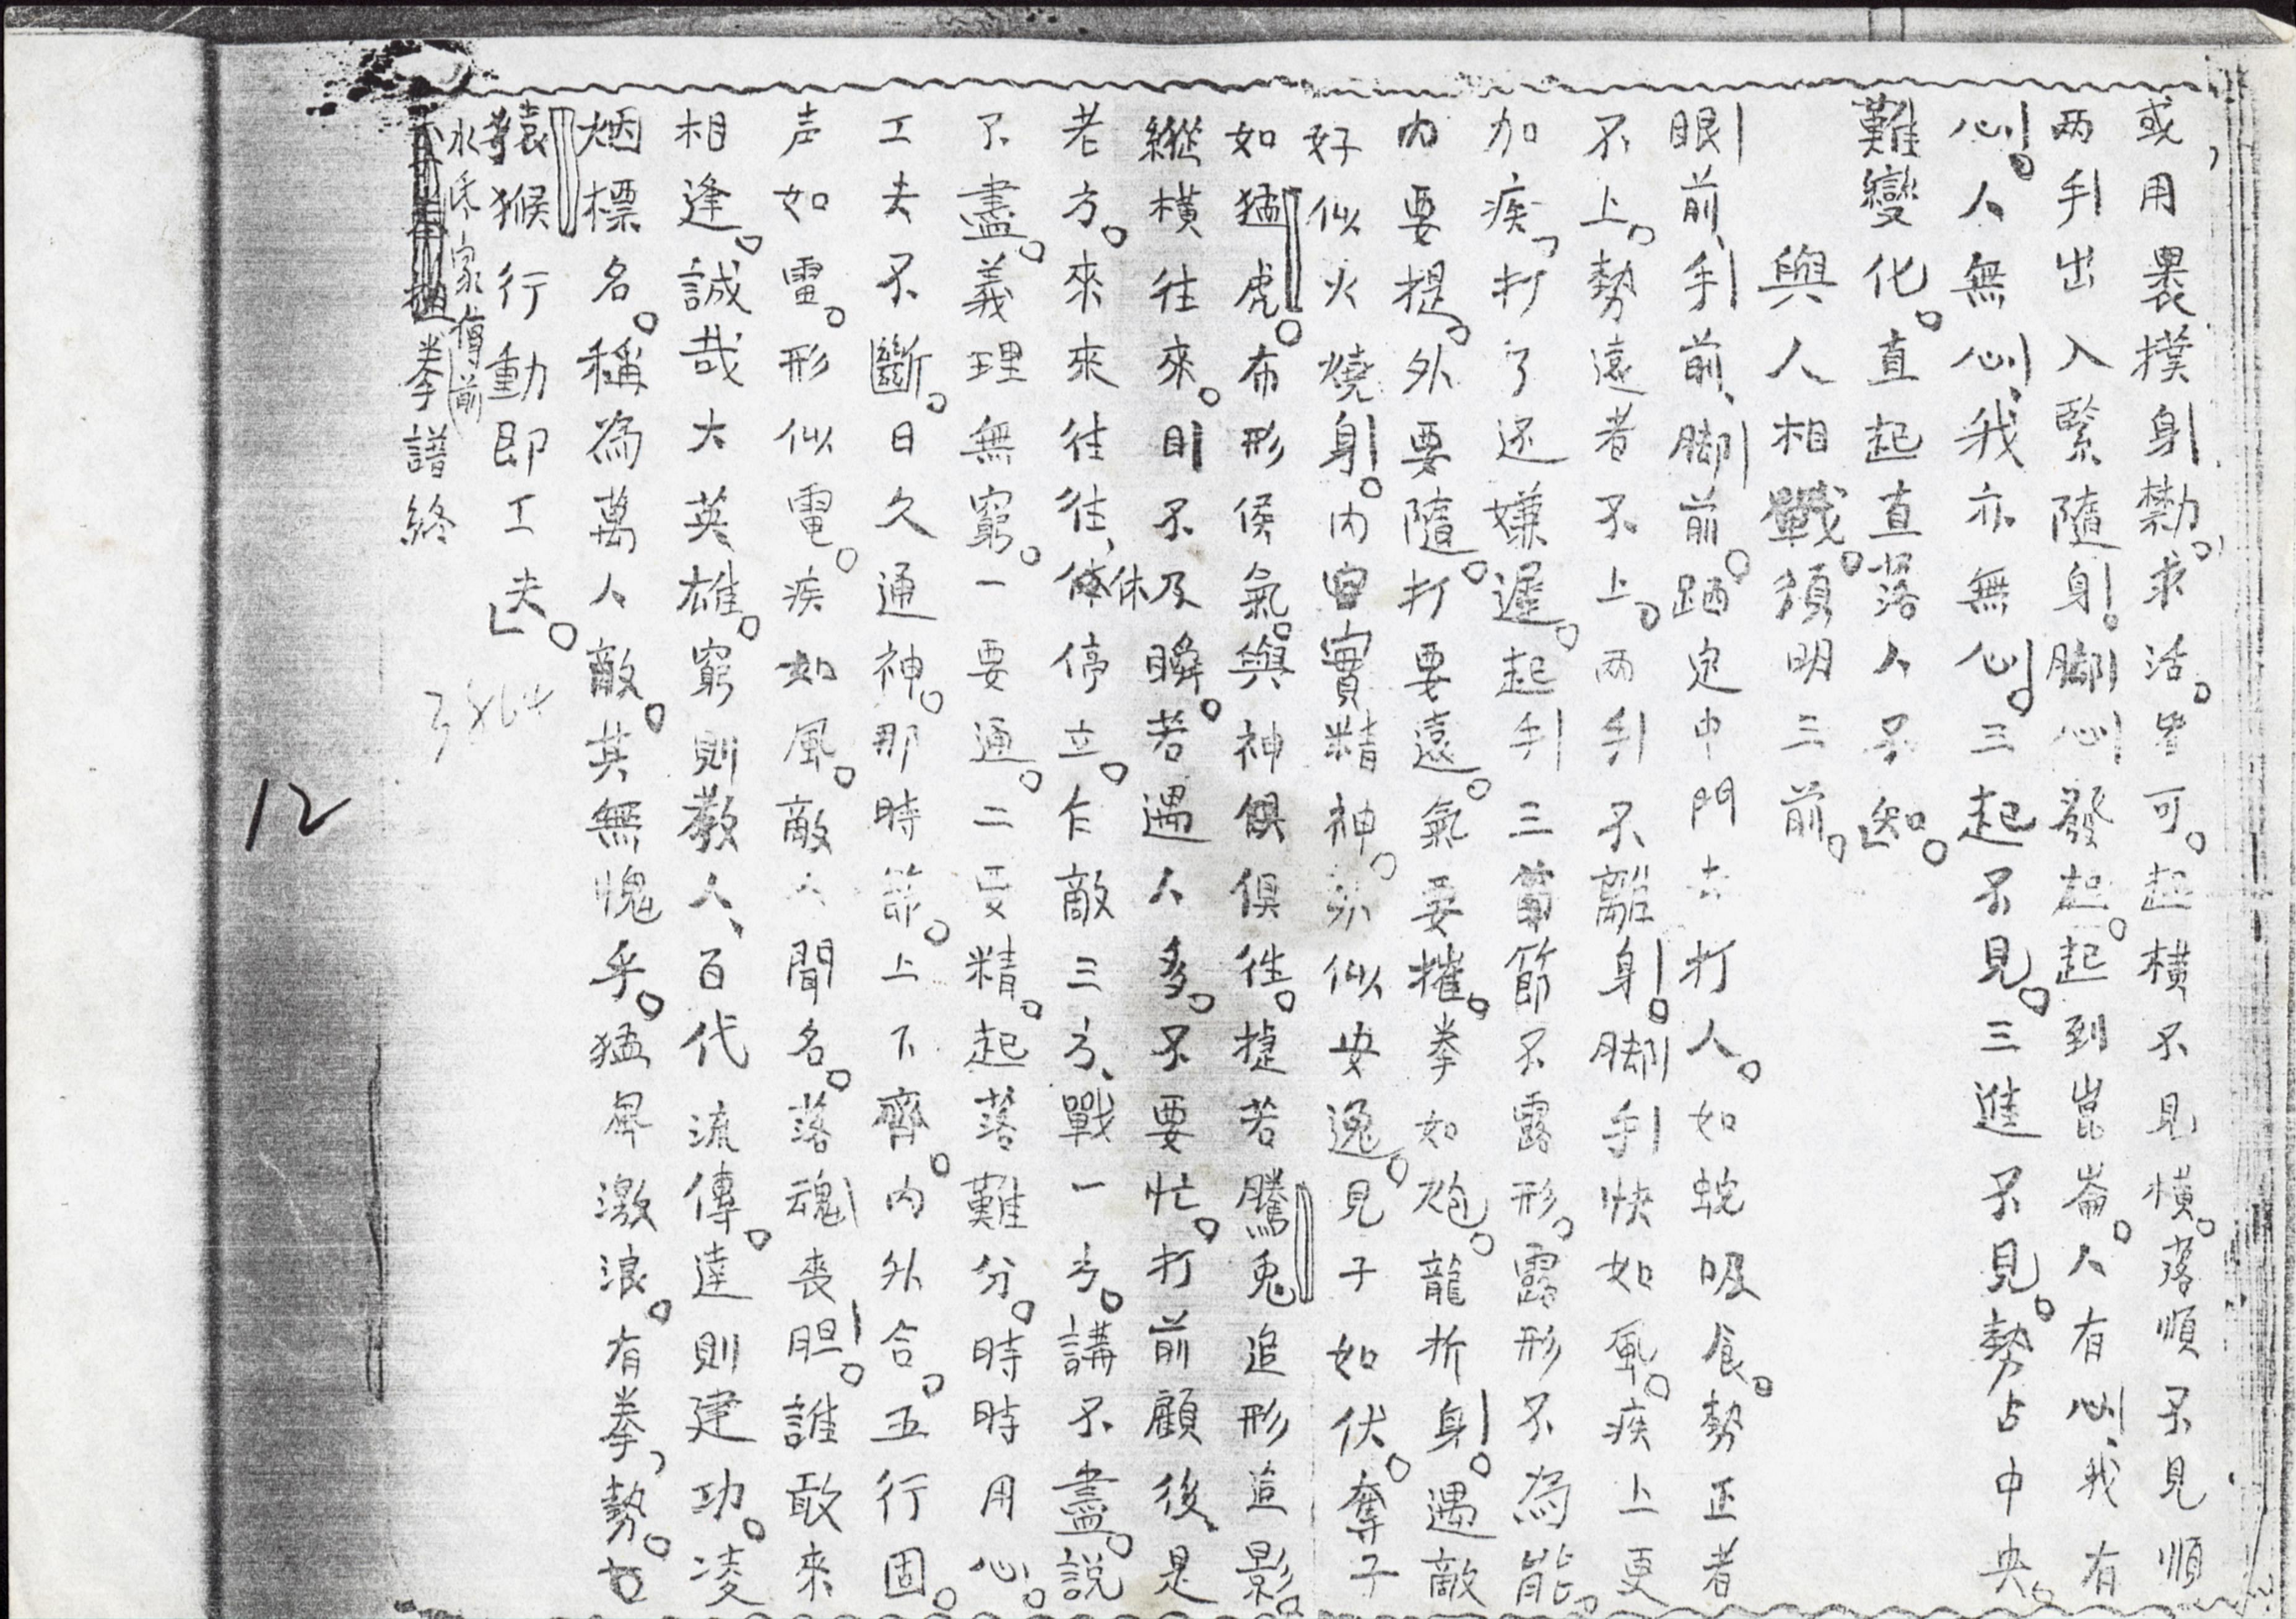 或用裹撲身勦。求活。皆可。起橫不見橫。落順不見順
两手出入緊隨身。脚心發起。起到崑崙。人有心、我有
心。人無心、我亦無心。三起不見。三進不見。勢占中央。
難變化。直起直落人不知。」
與人相戰。須明三前。
眼前、手前、脚前。踏定中門去打人。如蛇吸食。勢正者
不上。勢遠者不上。两手不離身。脚手快如風。疾上更
加疾、打了还嫌遲。起手三節不露形。露形不為能。
内要提。外要隨。打要遠。氣要摧。拳如炮。龍折身。遇敵
好似火燒身。内實精神。外似安逸。見子如伏。奪子
如猛虎。布形侯氣。與神俱往。捷若騰兔追形逭影。
縱橫往來。目不及瞬。若遇人多。不要忙。打前顧後、是
老方。來來往往、休停立。乍敵三方、戰一方。講不盡。説
不盡。義理無窮。一要通。二要精。起落難分。時時用心。
工夫不斷。日久通神。那時節。上下齊。内外合。五行固。
声如雷。形似電。疾如風。敵人聞名。落魂喪胆。誰敢來
相逢。誠哉大英雄。窮則教人、百代流傳。達則建功。凌
烟標名。稱為萬人敵。其無愧乎。猛犀激浪。有拳、勢。
猿猴行動即工夫。」
水氏家傳前
拳譜終
12